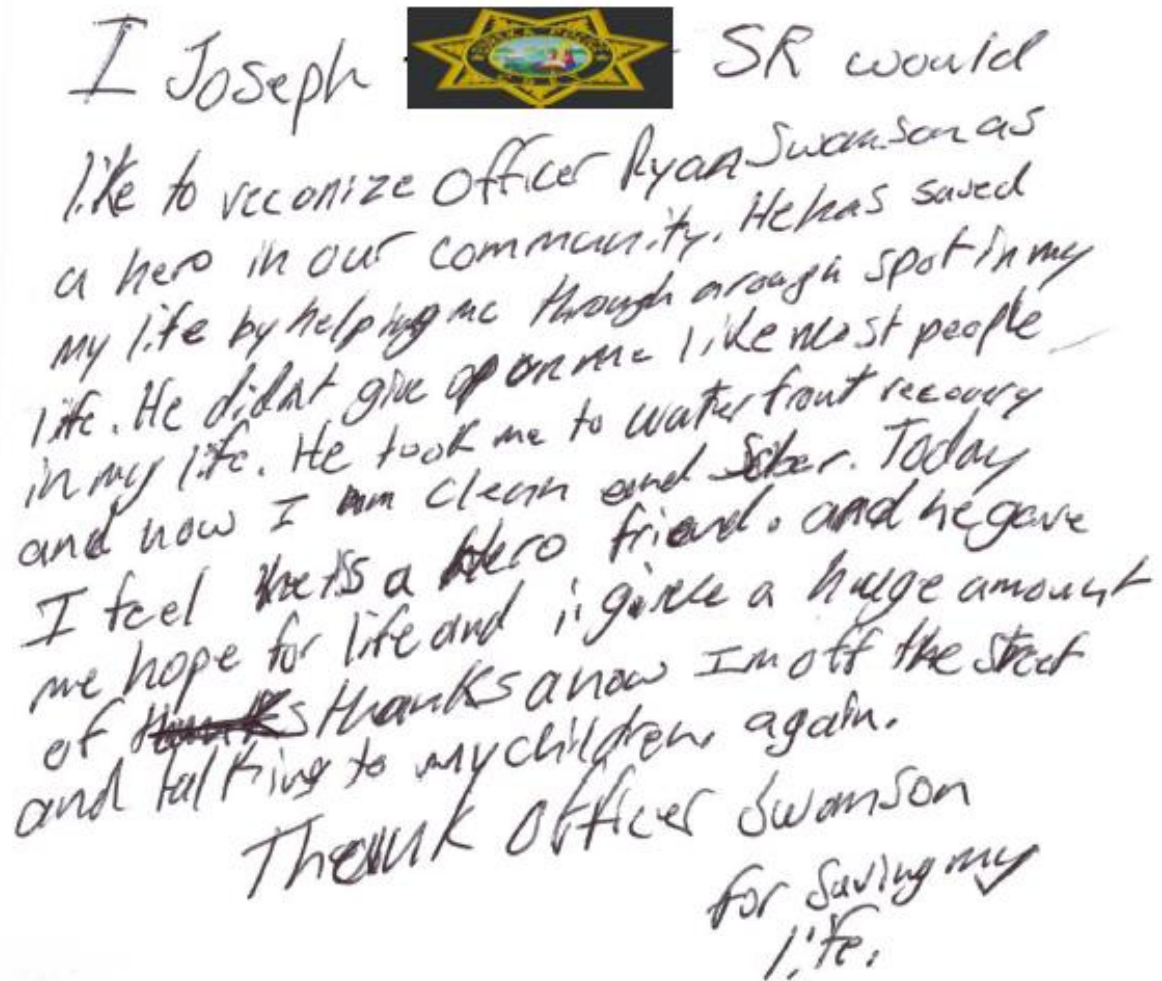 I Joseph SR would
like to reconize Officer Ryan Swanson as
a hero in our community. He has saved
my life by helping me through a rough spot in my
life. He didnt give up on me like most people
in my life. He took me to waterfront recovery
and now I am clean and Sober. Today
I feel he is a Hero friend. and he gave
me hope for life and i give a huge amount
of thanks thanks a now Im off the street
and talking to my children again.
Thank Officer Swanson
for Saving my
life.